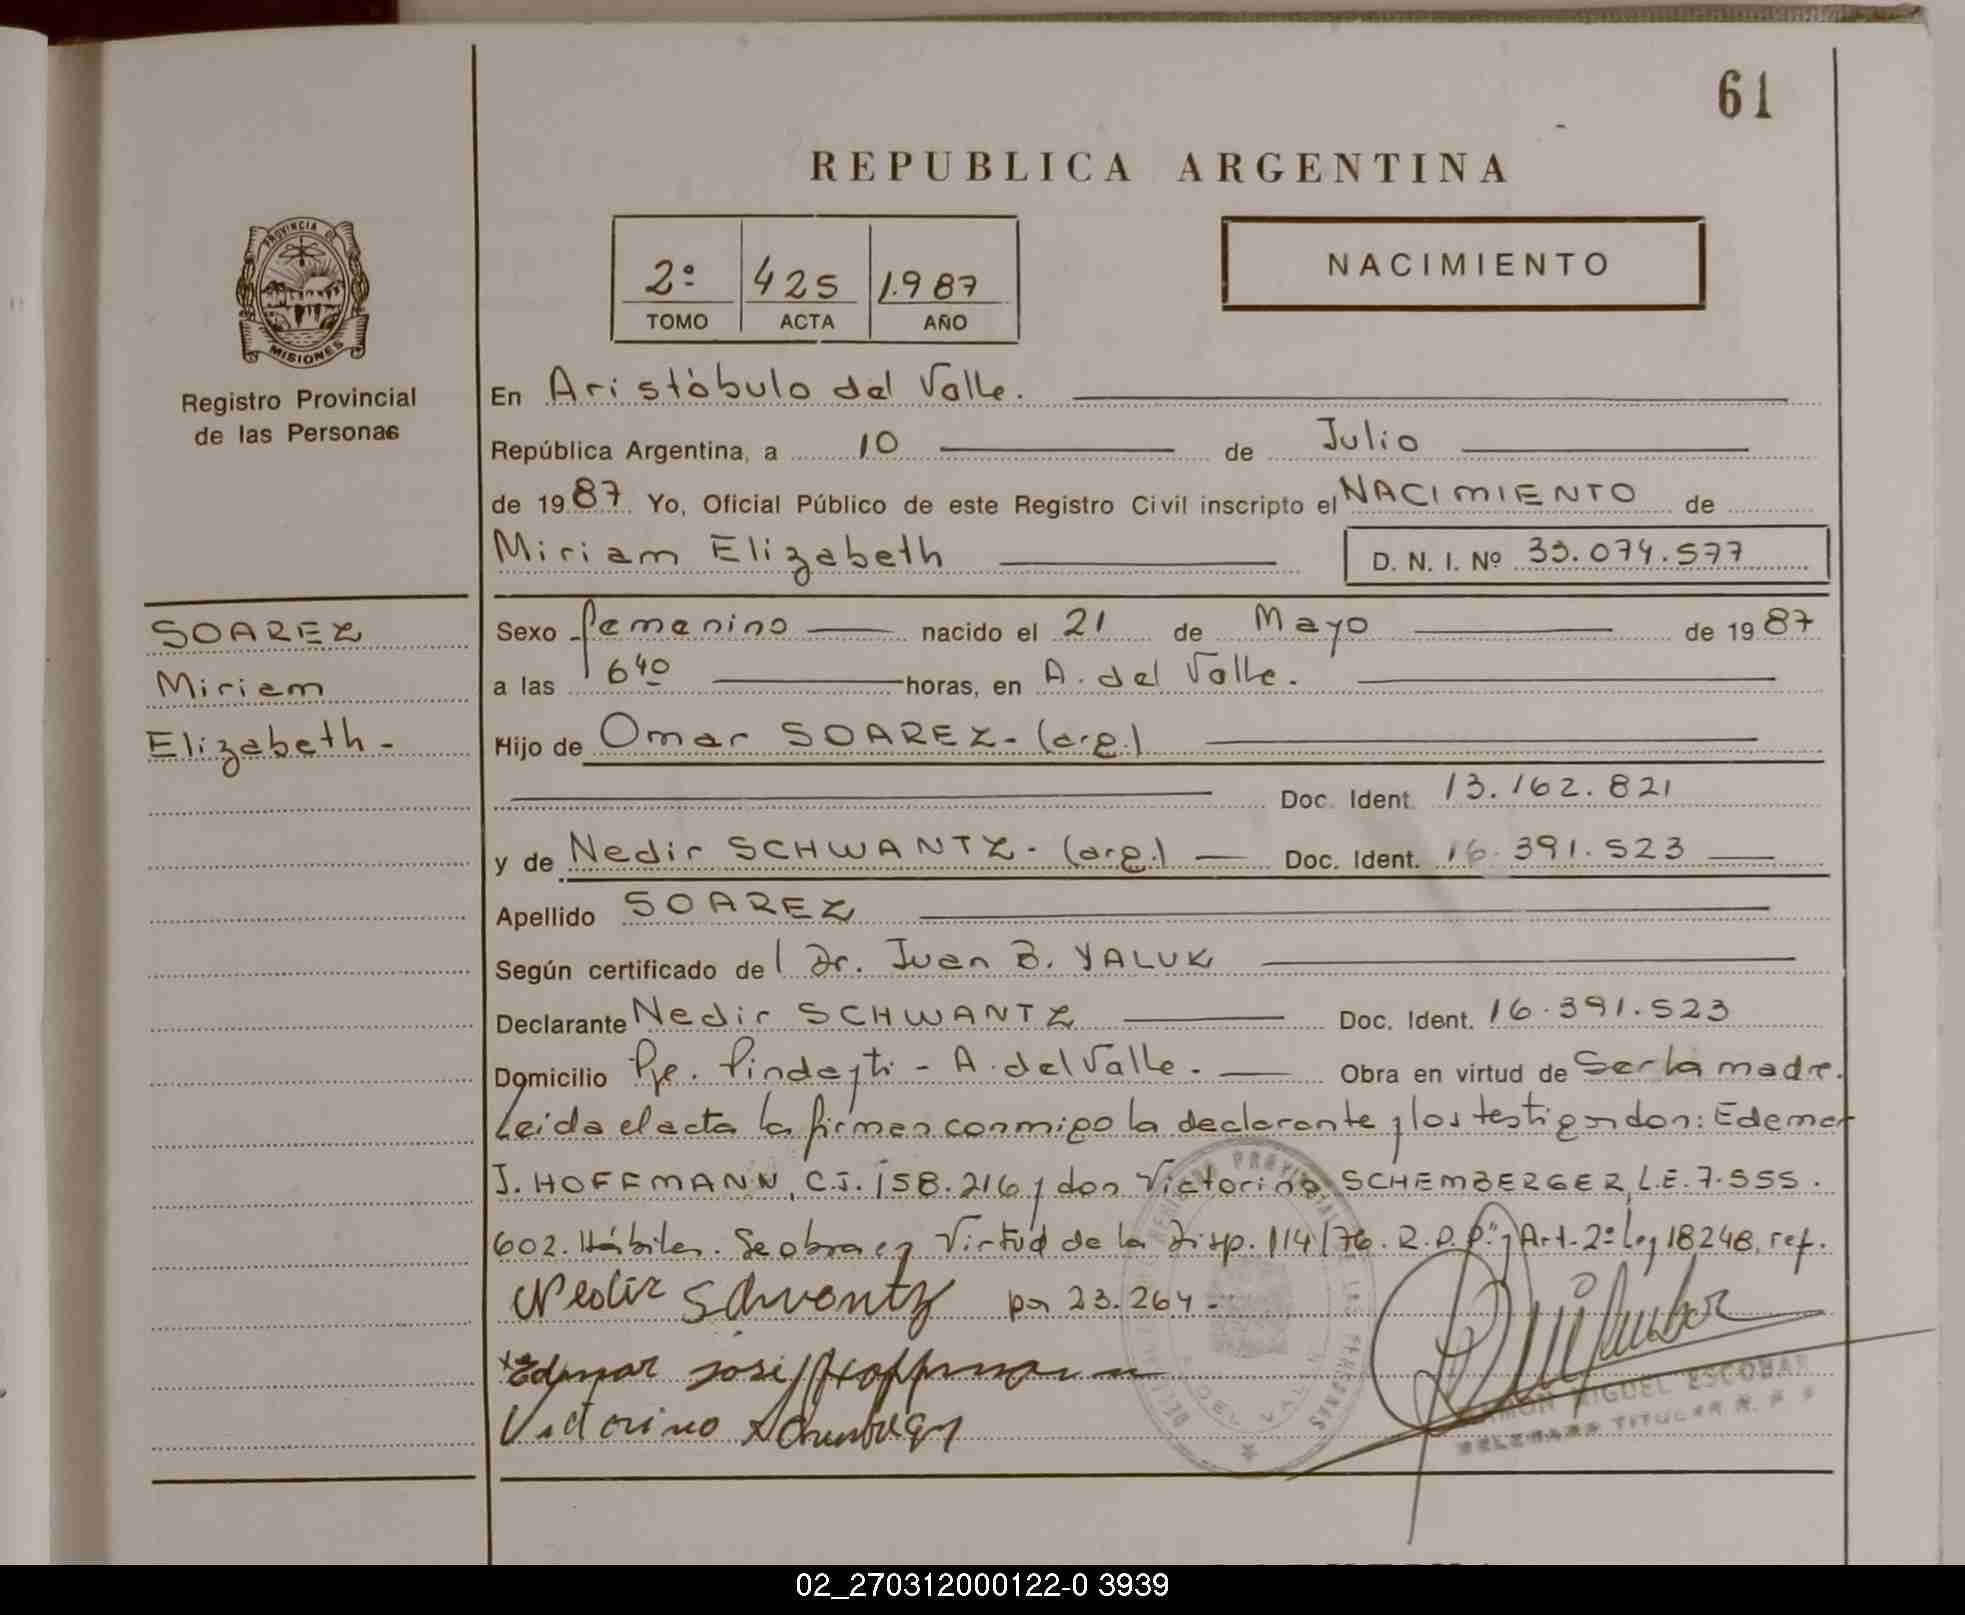 61
REPUBLICA ARGENTINA
PROVINCIA DE
MISIONES
Registro Provincial
de las Personas
2º 425 1.987
TOMO ACTA AÑO
NACIMIENTO
En Aristóbulo del Valle.
República Argentina, a 10 de Julio
de 1987 Yo, Oficial Público de este Registro Civil inscripto el NACIMIENTO de
Miriam Elizabeth D. N. I. Nº 33.074.577
SOAREZ
Miriam
Elizabeth -
Sexo femenino nacido el 21 de Mayo de 1987
a las 6 40 horas, en A. del Valle.
Hijo de Omar SOAREZ - (arg.)
Doc. Ident. 13.162.821
y de Nedir SCHWANTZ - (arg.) Doc. Ident. 16.391.523
Apellido SOAREZ
Según certificado de l Dr. Juan B. YALUK
Declarante Nedir SCHWANTZ Doc. Ident. 16.391.523
Domicilio Pje. Pindayti - A. del Valle. Obra en virtud de Ser la madre.
Leida el acta la firman conmigo la declarante y los testigos don: Edemar
J. HOFFMANN, C.I. 158.216 y don Victorino SCHEMBERGER, L.E. 7.555.
602. Hábiles. Se obra en Virtud de la Disp. 114/76. R.P.P. y Art. 2º Ley 18248, ref.
por 23.264 -
Nedir Schwantz
Edemar José Hoffmann
Victorino Schemberger
RAMON MIGUEL ESCOBAR
DELEGADO TITULAR R. P. P.
02_270312000122-0 3939